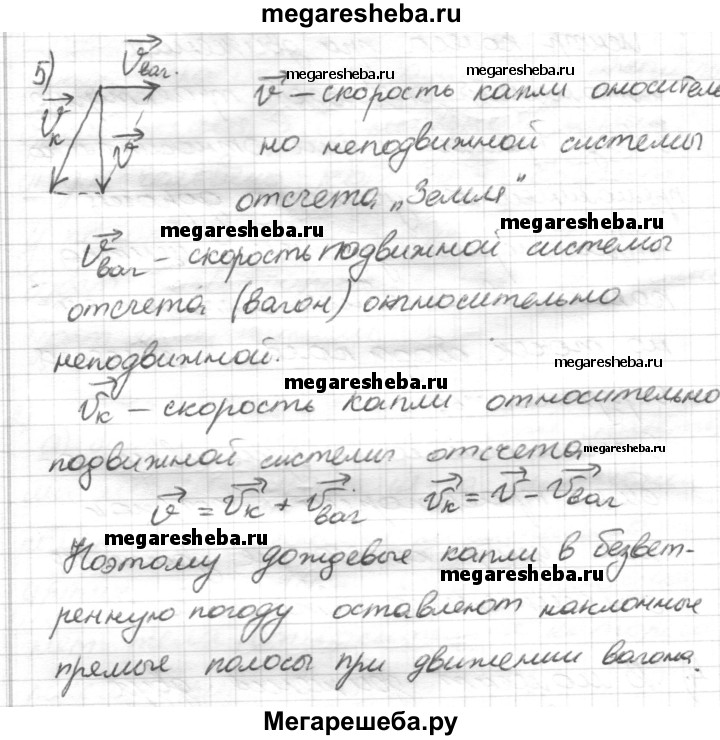 megaresheba.ru
5) v⃗ваг.
v⃗к v⃗
v⃗ – скорость капли оноситель
megaresheba.ru megaresheba.ru
но неподвижной системы
отсчета „Земля"
megaresheba.ru megaresheba.ru
v⃗ваг – скорость подвижной системы
отсчета (вагон) относительно
неподвижной.
megaresheba.ru
megaresheba.ru
v⃗к – скорость капли относительно
подвижной системы отсчета.
megaresheba.ru
v⃗ = v⃗к + v⃗ваг. v⃗к = v⃗ – v⃗ваг
megaresheba.ru
Поэтому дождевые капли в безвет-
megaresheba.ru
ренную погоду оставляют наклонные
прямые полосы при движении вагона.
Мегарешеба.ру